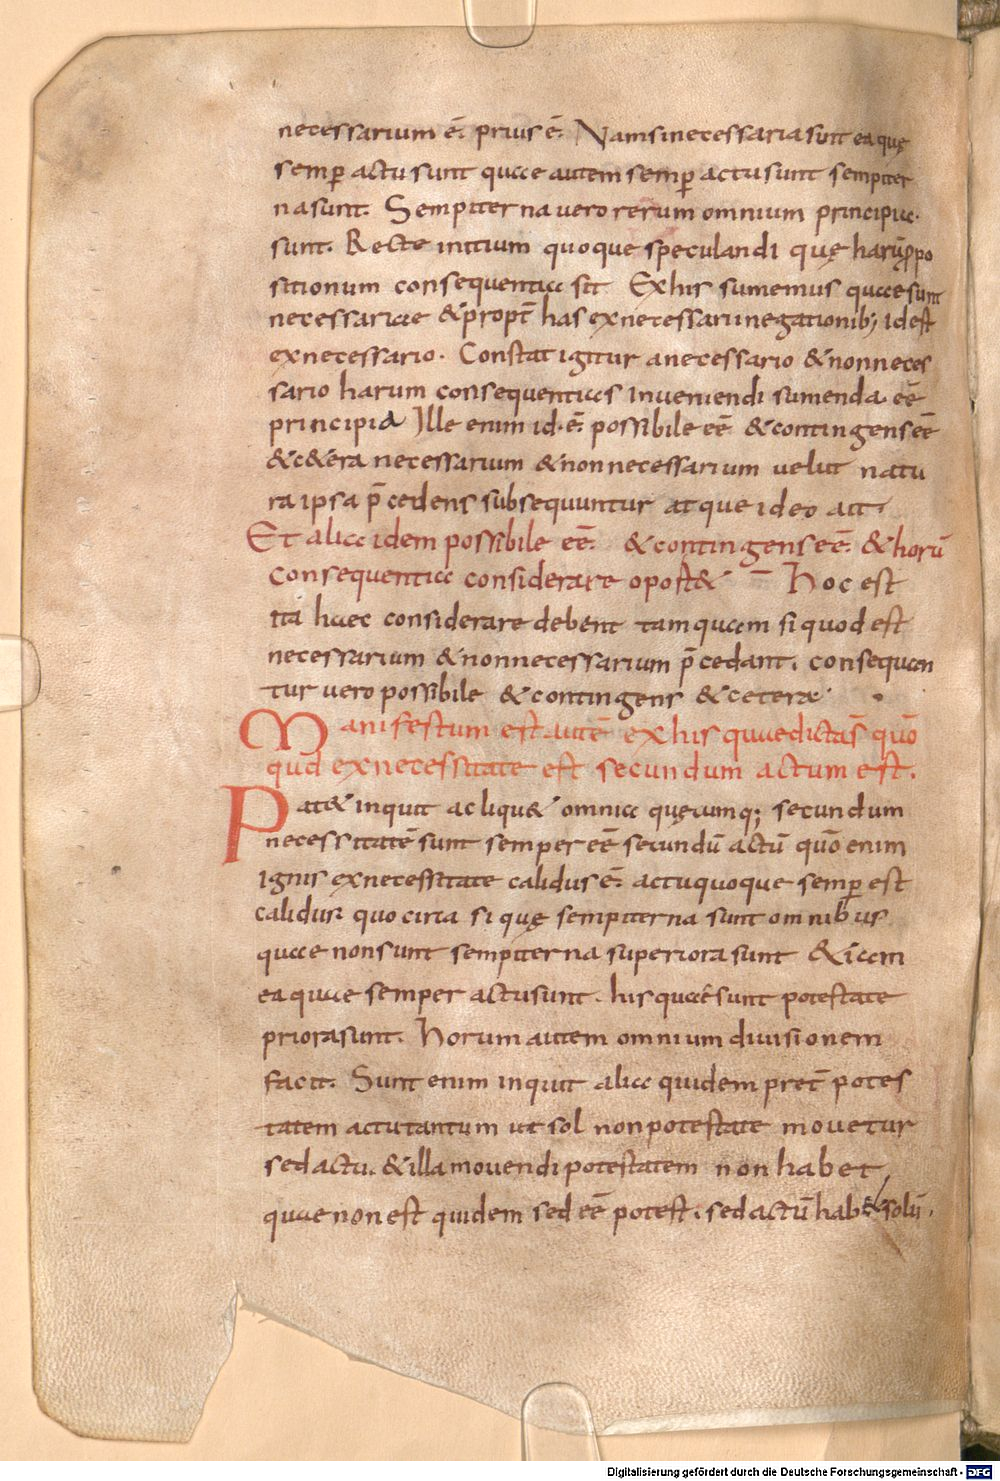 necessarium ē. prius ē. Nam si necessaria sunt ea quę
semꝑ actu sunt quae autem semꝑ actu sunt sempiter
na sunt. Sempiterna vero rerum omnium principia
sunt. Recte initium quoque speculandi quę harūpropo
sitionum consequentia sit Ex his sumemus quae sunt
necessariae &propt̄ has ex necessarii negationib; id est
ex necessario. Constat igitur a necessario &non neces
sario harum consequentias inveniendi sumenda eē
principia Ille enim id.ē. possibile eē &contingens eē
&c&era necessarium &non necessarium velut natu
ra ipsa p̄cedens subsequuntur atque ideo ait.
Et alia idem possibile eē. &contingens eē. &horū
consequentia considerare oport& Hoc est
ita haec considerare debent tamquam si quod est
necessarium &non necessarium p̄cedant, consequan
tur vero possibile &contingens &cetera
Manifestum est autē ex his quae dicta s̄ quō
qud ex necessitate est secundum actum est.
Pat& inquit ac liqu& omnia quęcumq; secundum
necessitatē sunt semper eē secundū actū quō enim
ignis ex necessitate calidus ē. actu quoque semꝑ est
calidus, quo circa si quę sempiterna sunt omnibus
quae non sunt sempiterna superiora sunt &iam
ea quae semper actu sunt. his quae sunt potestate
priora sunt. Horum autem omnium divisionem
facit. Sunt enim inquit alia quidem pret̄ potes
tatem actu tantum ut sol non potestate movetur
sed actu. &illa movendi potestatem non habet
quae non est quidem sed eē potest. sed actū hab& solū.
Digitalisierung gefördert durch die Deutsche Forschungsgemeinschaft - DFG